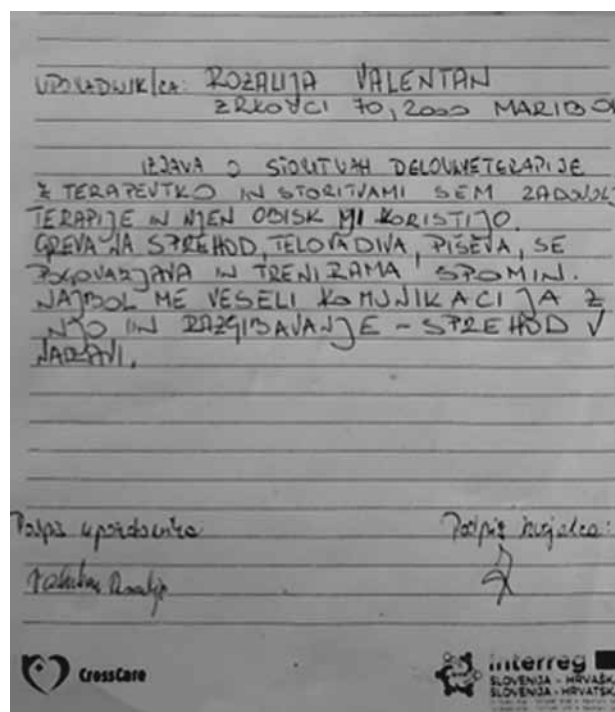 UPORABNIK/CA: ROZALIJA VALENTAN
ZRKOVCI 70, 2000 MARIBO
IZJAVA O STORITVAH DELOVNETERAPIJE
Z TERAPEVTKO IN STORITVAMI SEM ZADOVOL
TERAPIJE IN NJEN OBISK MI KORISTIJO.
GREVA NA SPREHOD, TELOVADIVA, PIŠEVA, SE
POGOVARJAVA IN TRENIRAMA SPOMIN.
NAJBOL ME VESELI KOMUNIKACIJA Z
NJO IN RAZGIBAVANJE - SPREHOD V
NARAVI.
Podpis uporabnika Podpis izvajalca:
Valentan Rozalija
CrossCare
interreg
SLOVENIJA - HRVAŠKA
SLOVENIJA - HRVATSK